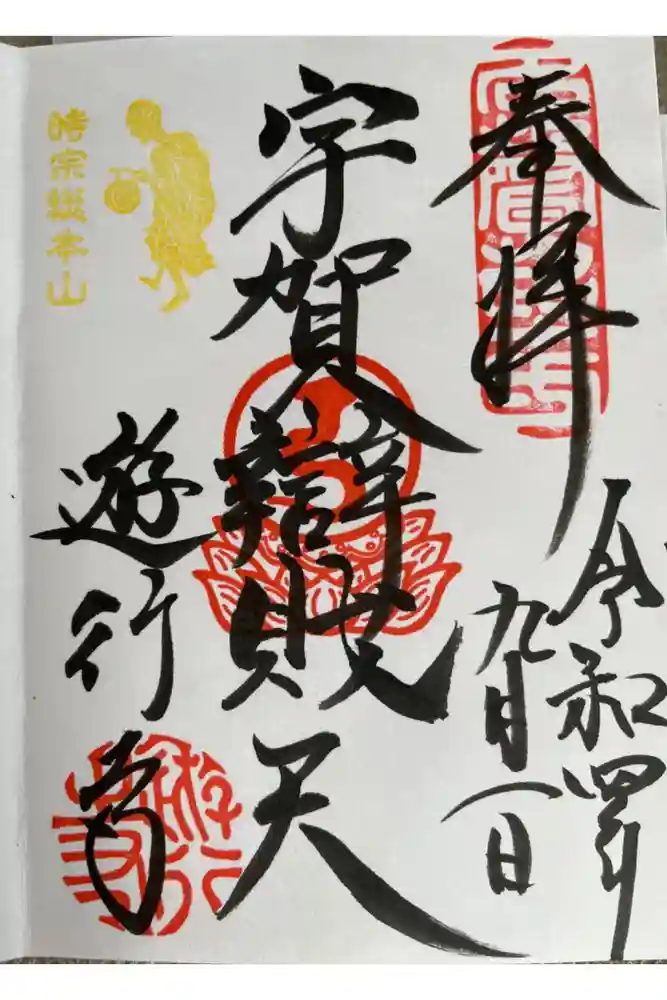 奉拝
令和四年
九月一日
宇賀辯財天
遊行寺
時宗総本山